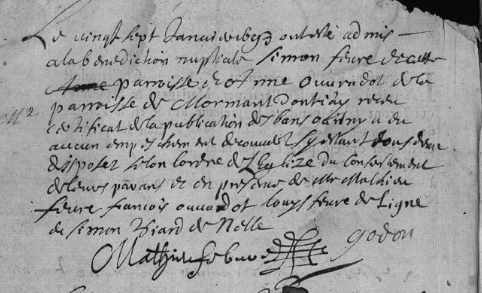 Le vingt sept Janvier ont esté admis
a la benediction nuptiale simon feure de cette
parroisse et Anne ouurardot de la
parroisse de Mormant dont iay receu
certificat de la publication des bans ou il ny a eu
aucun empeschement sestant tous deux
selon lordre de Leglize du consentement
de leurs parans et en presence de Mre Mathieu
feure francois ouurardot Louys feure de Ligne
de simon Biard de Nesle
Mathieu febure godou